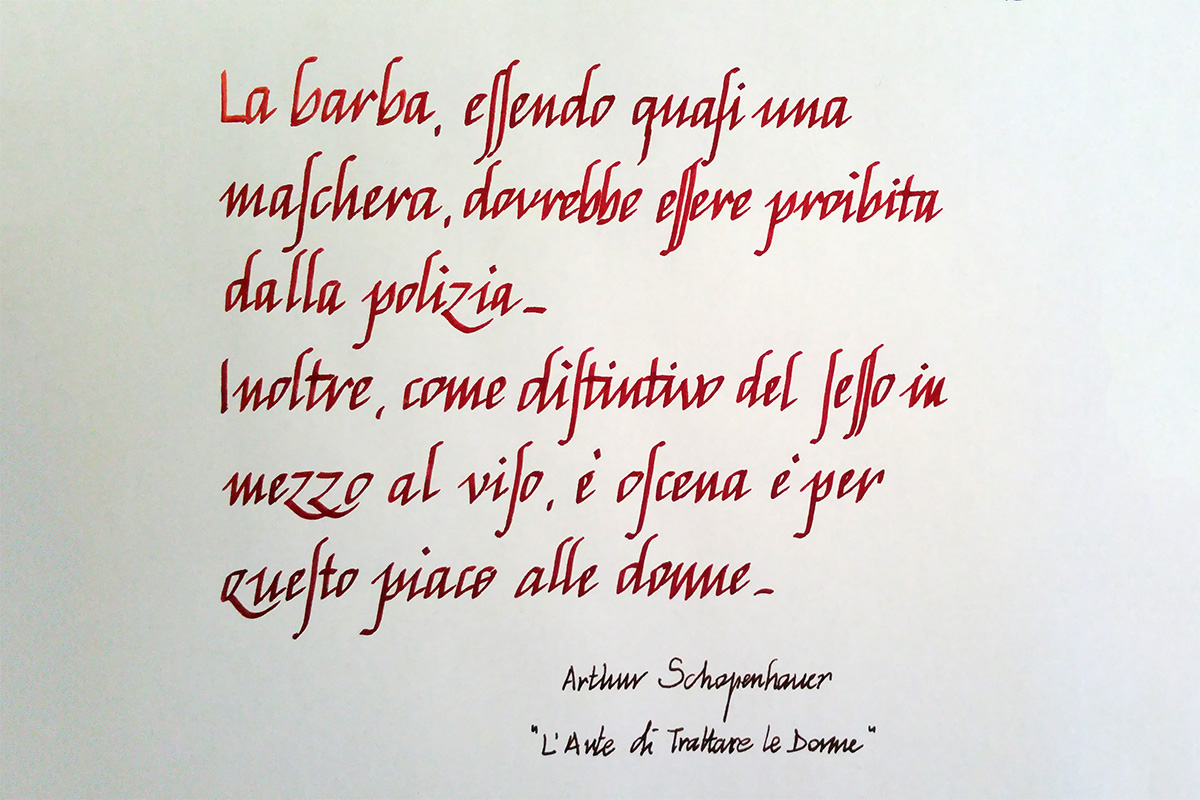 La barba, eſſendo quaſi una
maſchera, dovrebbe eſſere proibita
dalla polizia_
Inoltre, come diſtintivo del ſeſſo in
mezzo al viſo, è oſcena è per
queſto piace alle donne_
Arthur Schopenhauer
"L'Arte di Trattare le Donne"